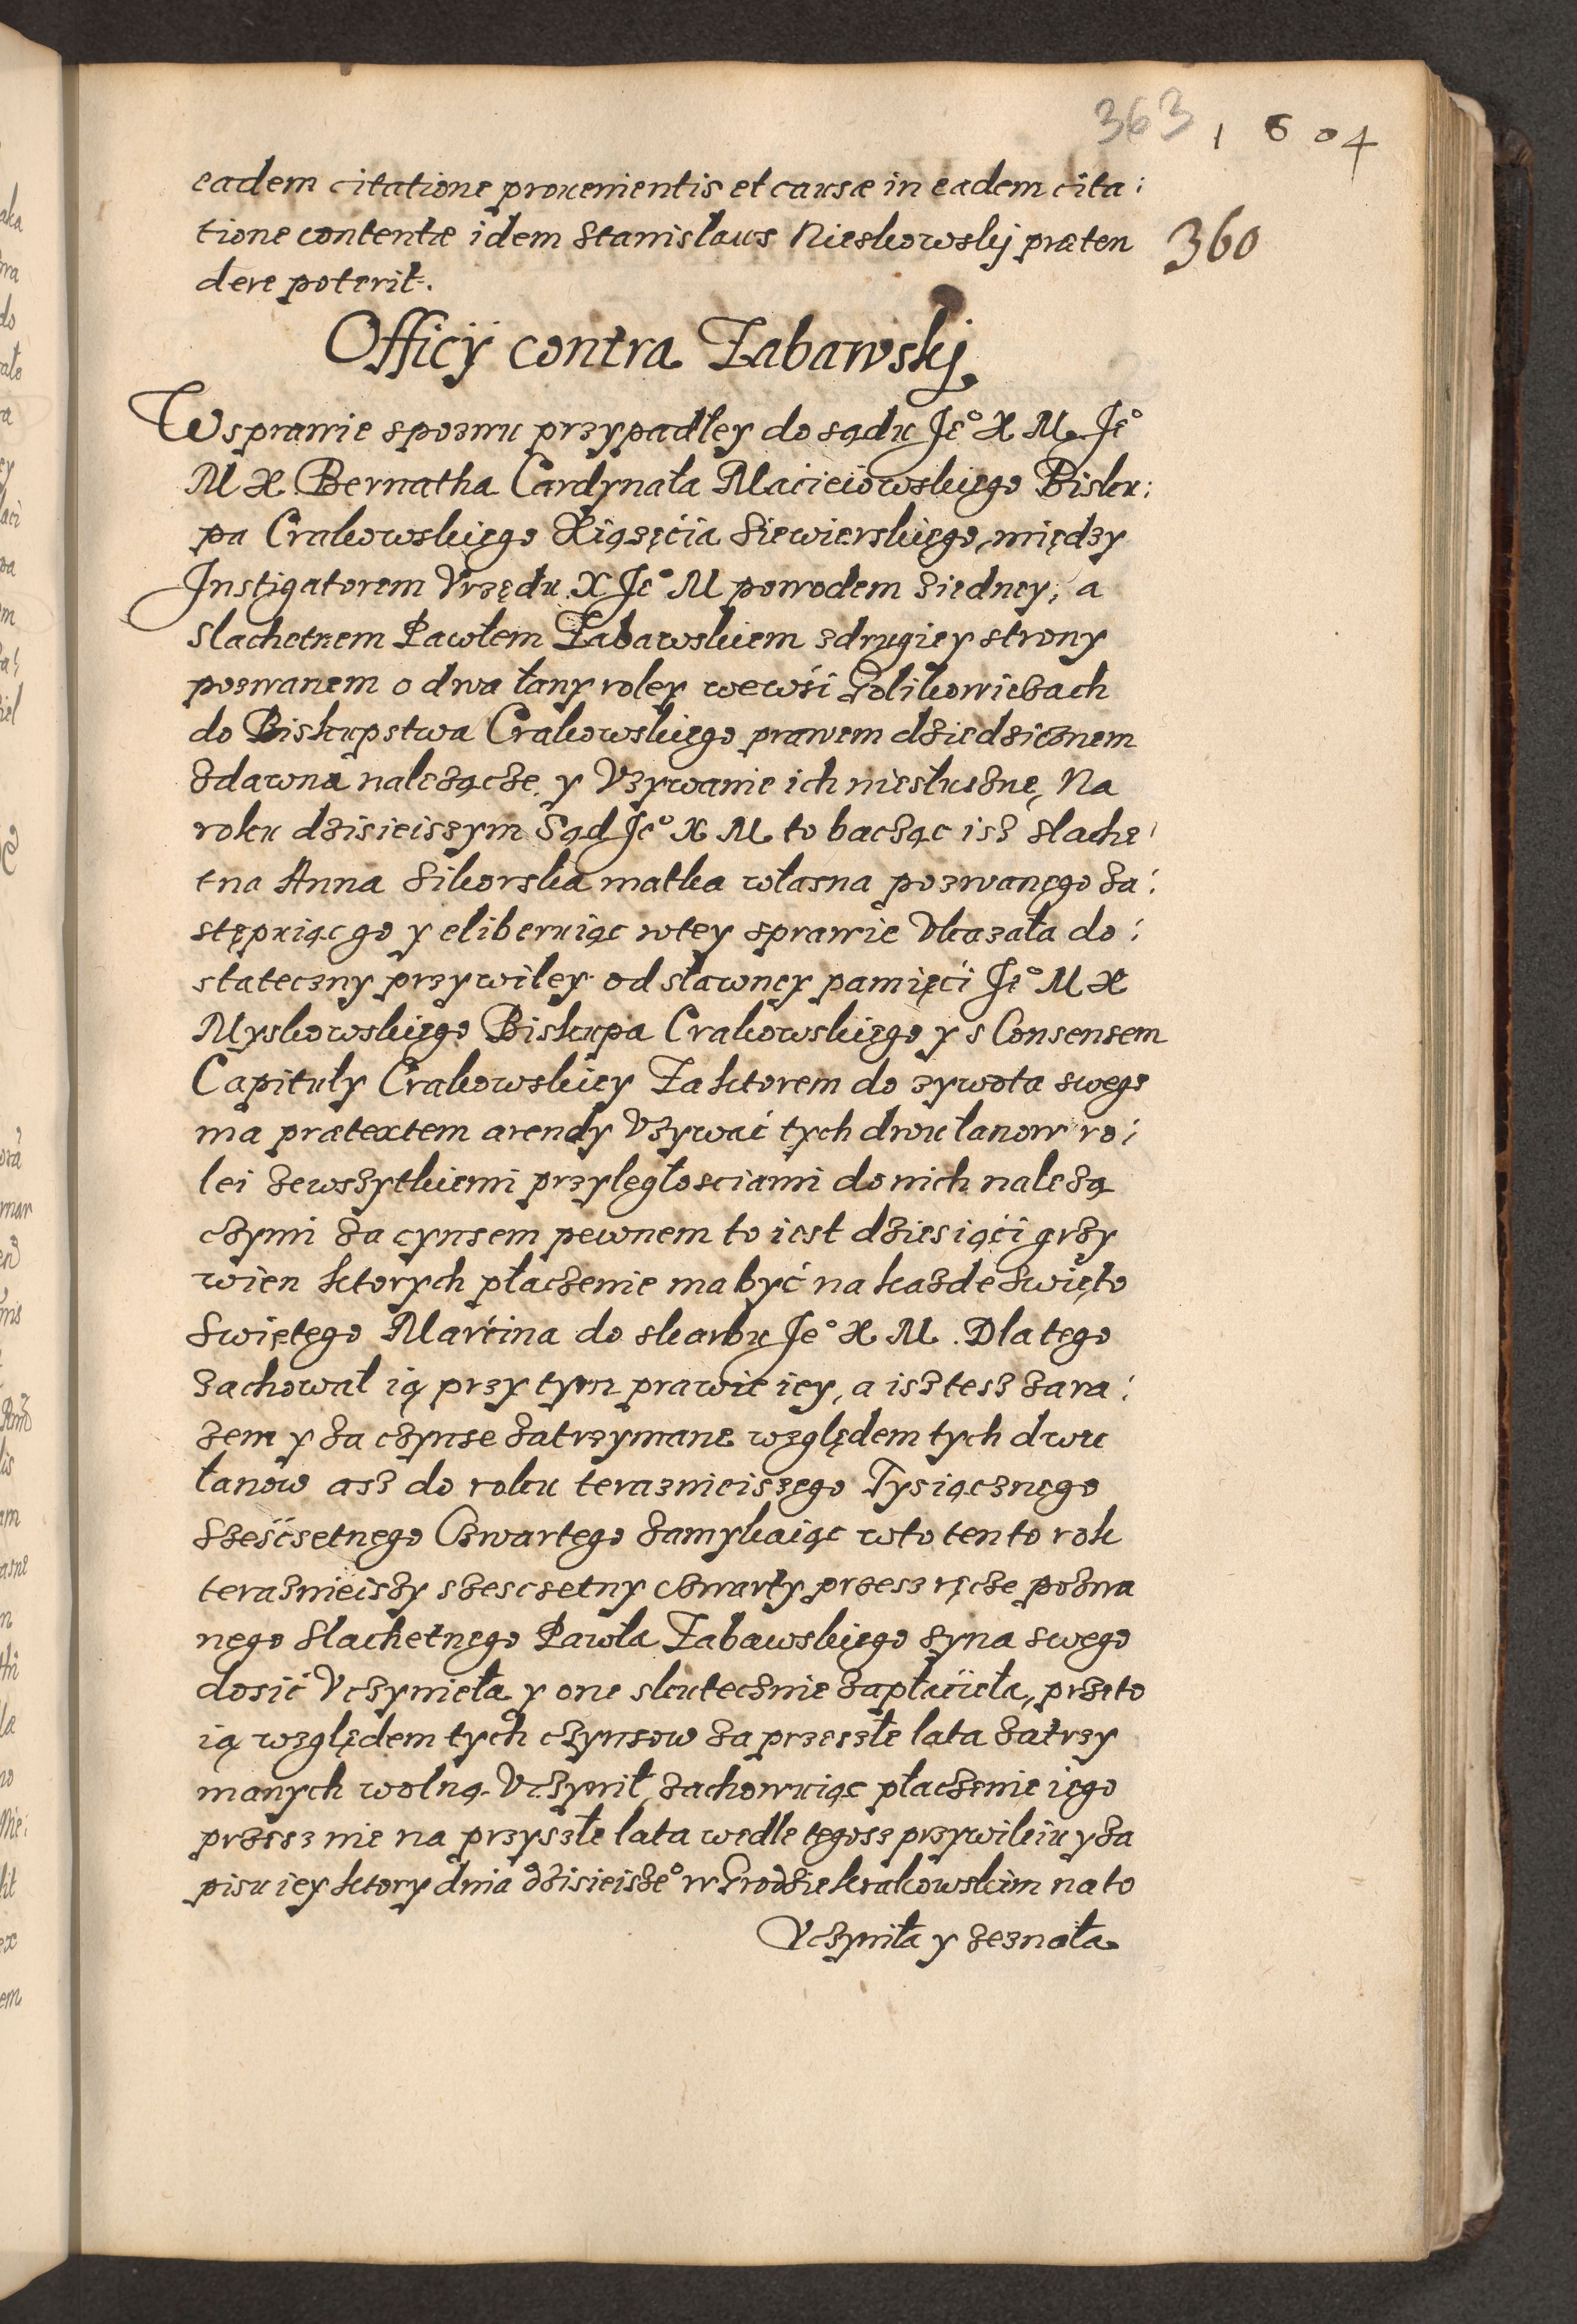 363 1604
eadem citatione prouenientis et causæ in eadem cita:
tione contentæ idem Stanislaus Nieskowskij præten
360
dere poterit.
Officÿ contra Zabawskj
W sprawie spozwu przypadłey do sądu Je° X M Je°
M X Bernatha Cardynała Macieiowskiego Bisku:
pa Crakowskięgo Xiązęćia Siewierskięgo, między
Instigatorem Vrzędu X Je° M powodem ziedney, a
Slachetnem Pawłem Zabawskiem zdrugiey strony
pozwanem o dwa łany roley wewśi Golikowiczach
do Biskupstwa Crakowskięgo prawem dziedzicznem
zdawna nalezącze y Vzywanie ich niesłuszne, Na
roku dzisieiszym Sąd Je° X M to bacząc isz slache:
tna Anna Sikorska matka własna pozwanęgo za:
stępuiąc go y eliberuiąc wtey sprawie Vkazała do:
stateczny przywiley od sławney pamięći Je° M X
Myskowskięgo Biskupa Crakowskięgo y s Consensem
Capituły Crakowskiey Za ktorem do zywota swego
ma prætextem arendy Vzywać tych dwu łanow ro:
lei zewszytkiemi przyległosciami do nich nalezą
czymi za cynsem pewnem to iest dziesiąći grzy
wien ktorych płaczenie ma być na kazde swięto
Swiętego Marćina do skarbu Je° X M. Dla tego
zachował ią przy tym prawie iey, a isz tesz zara:
zem y za czynse zatrzymane względem tych dwu
łanow asz do roku teraznieiszego Tysiącznęgo
Sześćsetnego Czwartego zamykaiąc wto ten to rok
teraznieiszy szescsetny czwarty przesz ręcze pozwa
nęgo slachetnęgo Pawła Zabawskięgo syna swęgo
dosić Vczynieła y one skutecznie zapłaćieła, przeto
ią względem tych czynsow za przeszłe lata zatrzy
manych wolną Vczynił, zachowuiąc płaczenie iego
przesz nie na przyszłe lata wedle tęgosz przywileiu y za
pisu iey ktory dnia dzisieisze° w Grodzie krakowskim na to
Vczyniła y zeznała